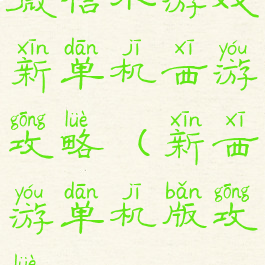 微信小游戏
xīn dān jī xī yóu
新单机西游
gōng lüè xīn xī
攻略（新西
yóu dān jī bǎn gōng
游单机版攻
lüè